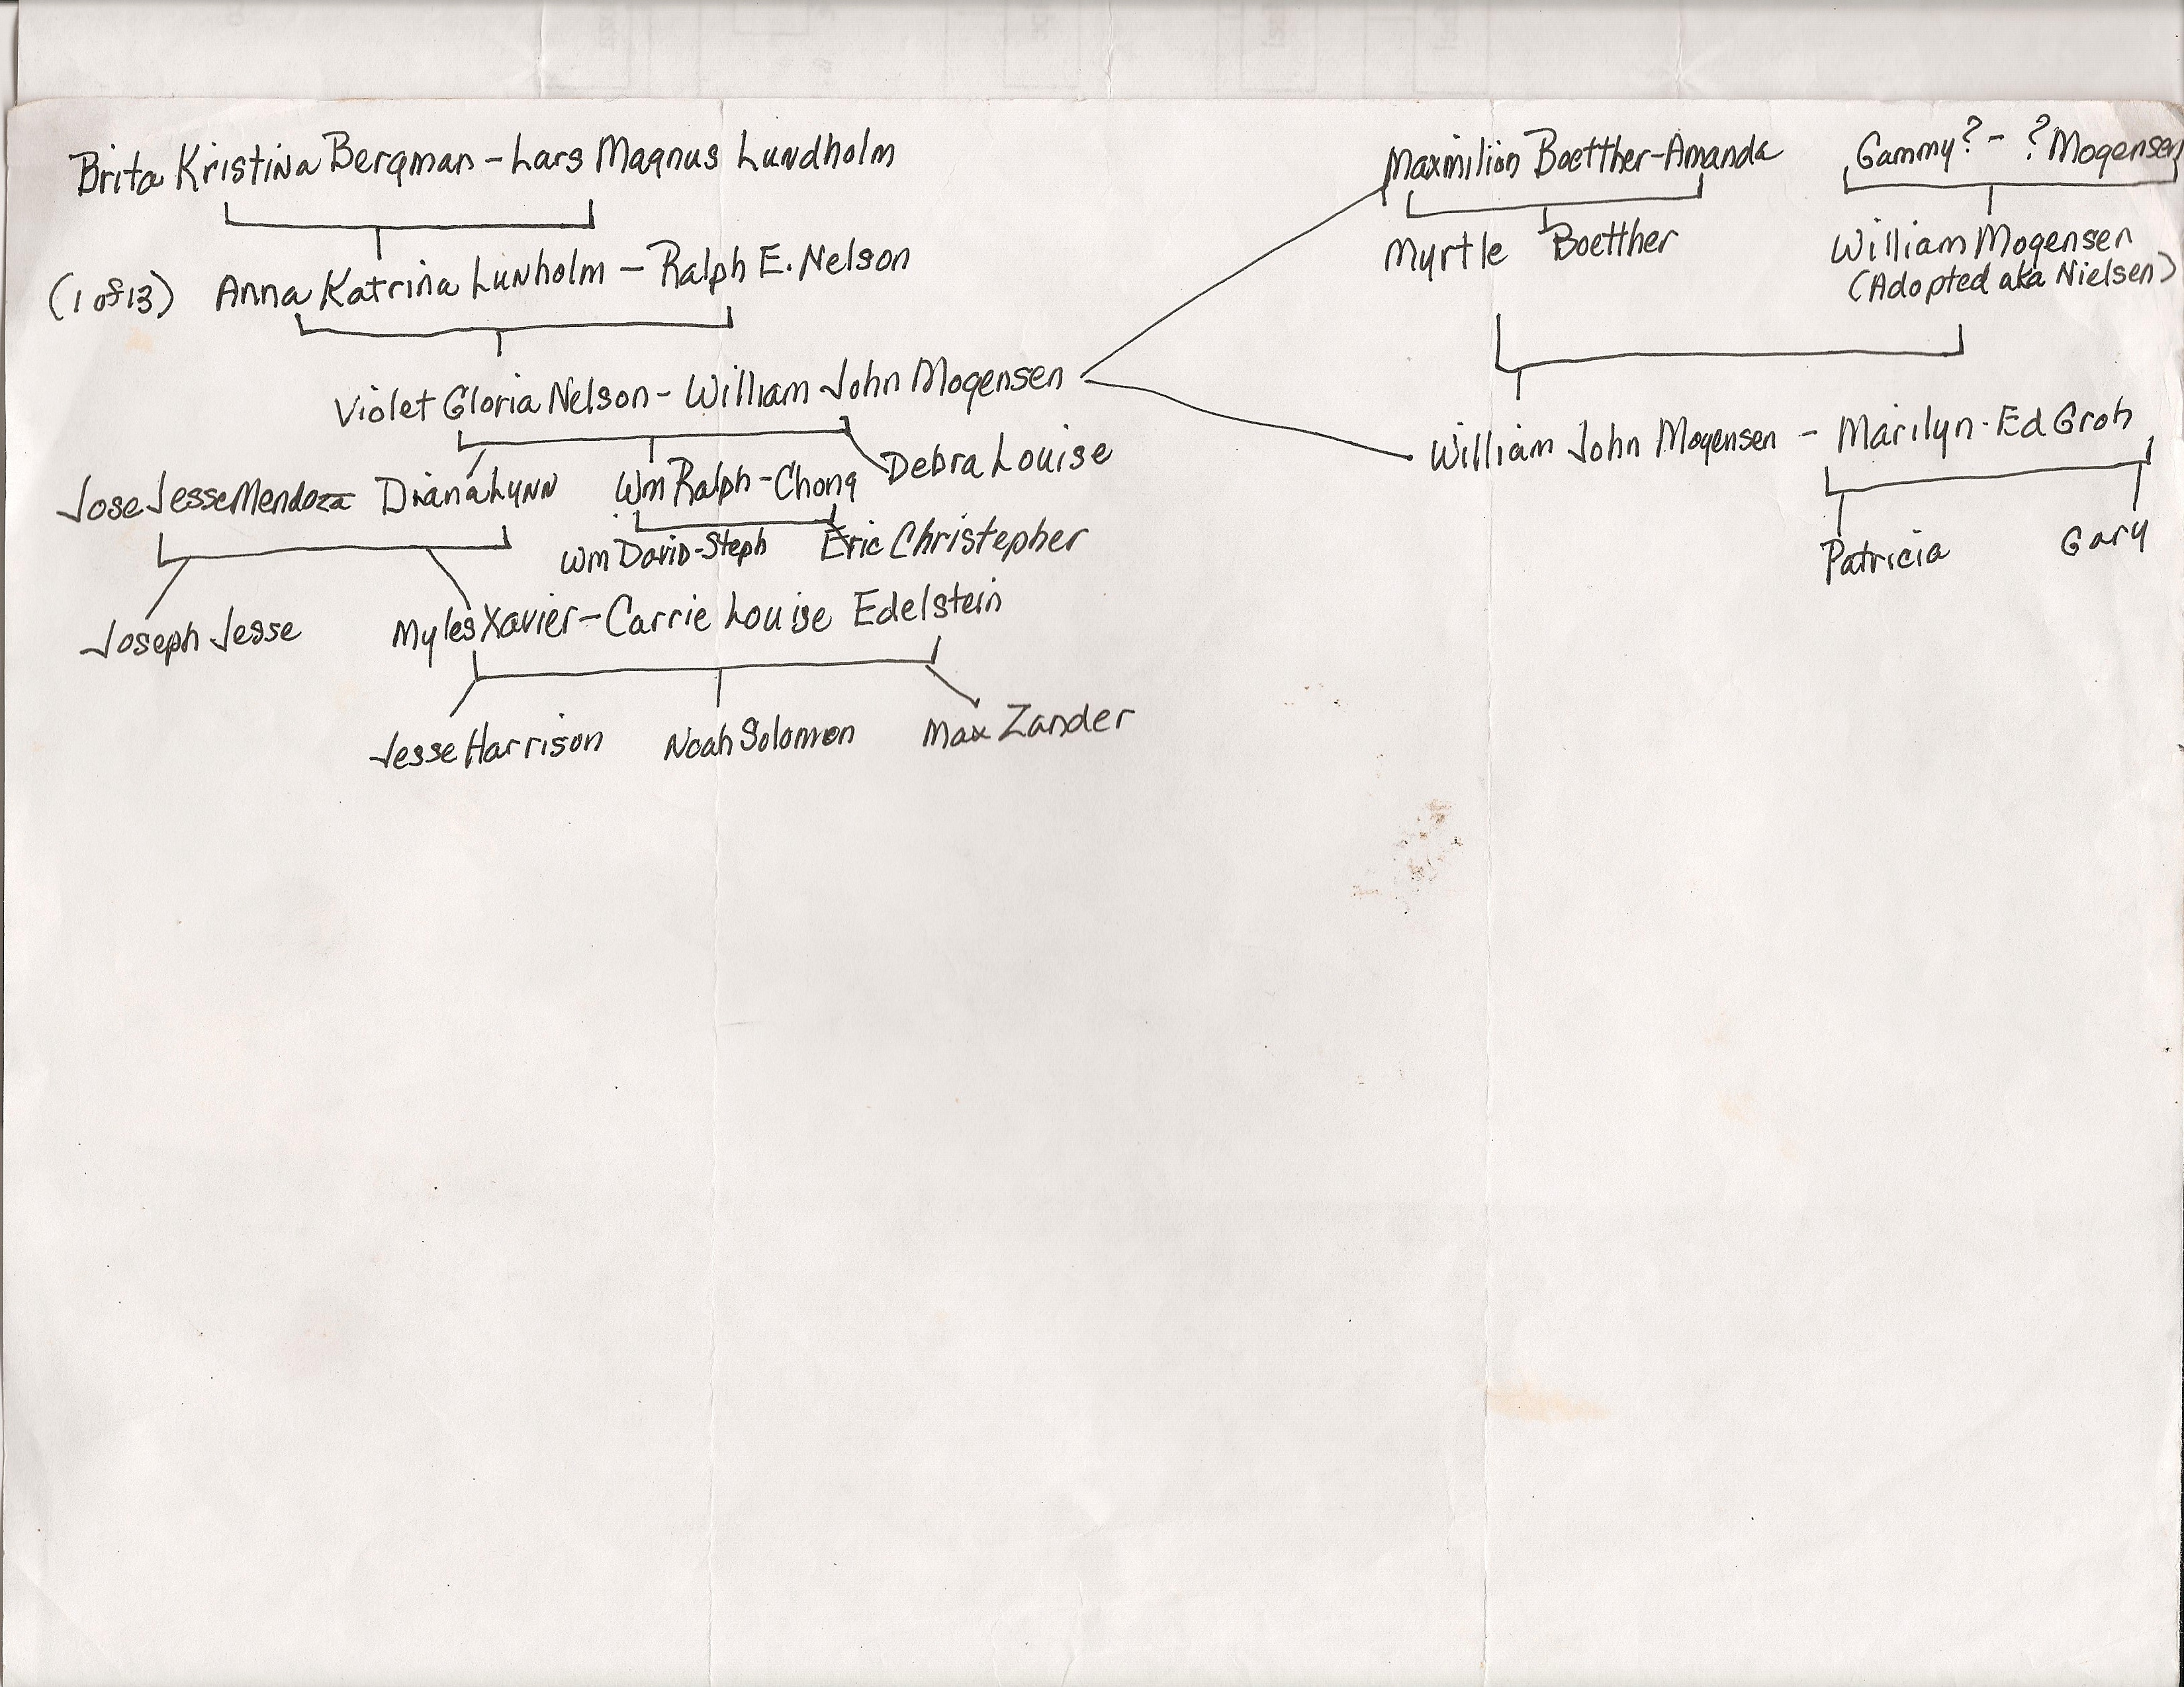 Brita Kristina Bergman - Lars Magnus Lundholm
(1 of 13) Anna Katrina Lunholm - Ralph E. Nelson
Violet Gloria Nelson - William John Mogensen
Jose Jesse Mendoza Diana Lynn Wm Ralph - Chong Debra Louise
Wm David - Steph Eric Christopher
Joseph Jesse Myles Xavier - Carrie Louise Edelstein
Jesse Harrison Noah Solomon Max Zander
Maxmilion Boetther - Amanda Gammy? - ? Mogensen
Myrtle Boetther William Mogensen
(Adopted aka Nielsen)
William John Mogensen - Marilyn - Ed Groh
Patricia Gary